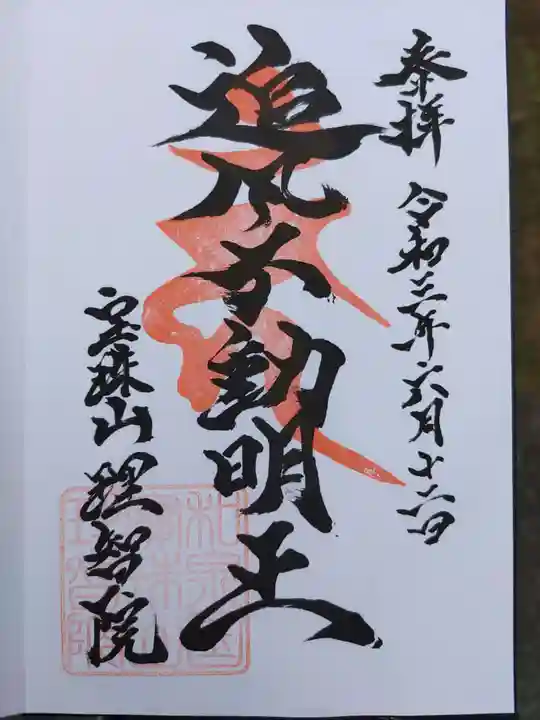 奉拝 令和三年六月十六日
追風不動明王
宝珠山理智院